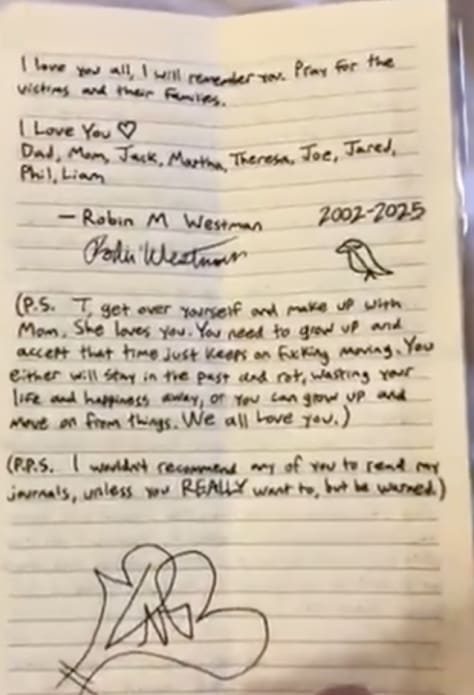 I love you all, I will remember you. Pray for the
victims and their families.
I Love You ♡
Dad, Mom, Jack, Martha, Theresa, Joe, Jared,
Phil, Liam
— Robin M Westman 2002-2025
Robin Westman
(P.S. T, get over yourself and make up with
Mom. She loves you. You need to grow up and
accept that time just keeps on fucking moving. You
either will stay in the past and rot, wasting your
life and happiness away, or you can grow up and
move on from things. We all love you.)
(P.P.S. I wouldn't recommend any of you to read my
journals, unless you REALLY want to, but be warned.)